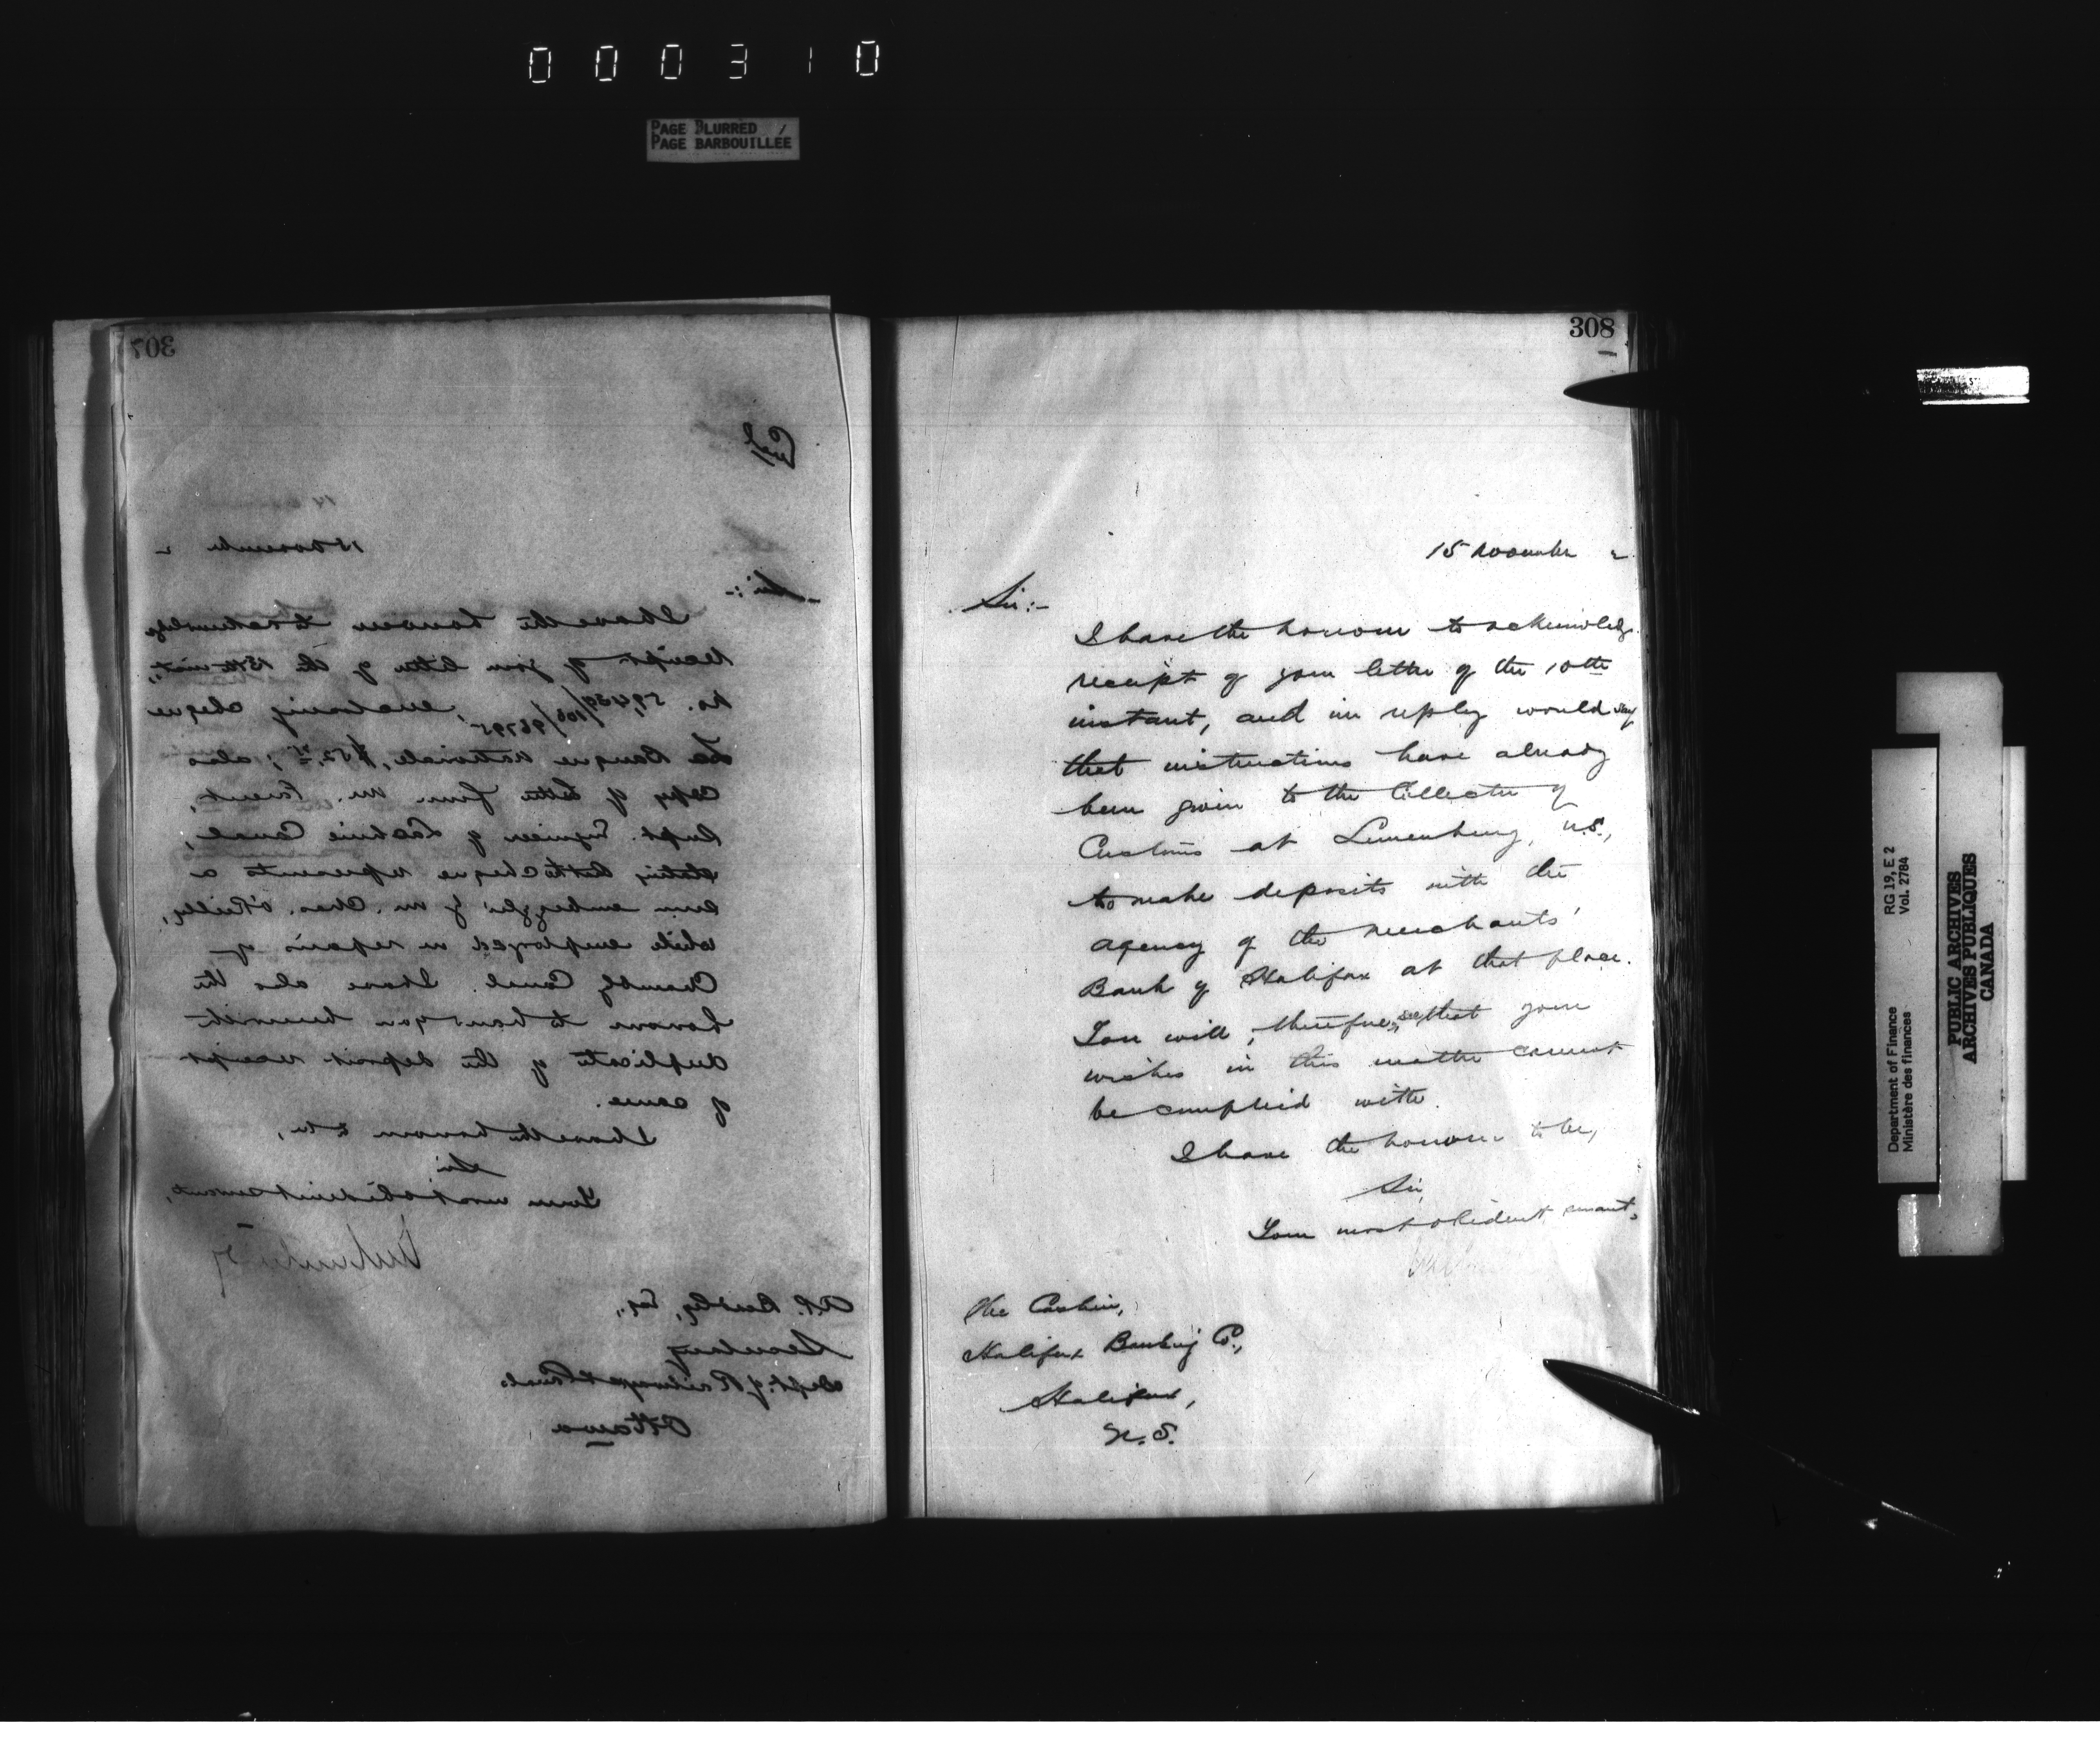 000310
PAGE BLURRED
PAGE BARBOUILLÉE
307
Encl
15 November 2
Sir:-
I have the honour to acknowledge
receipt of your letter of the 13th inst.,
No. 59,439/106/96795, enclosing cheque
La Banque Nationale, $52.75; also
copy of letter from Mr. Parent,
Supt. Engineer of Lachine Canal,
stating that the cheque represents a
sum embezzled by Mr. Chas. O'Reilly,
while employed on repairs of
Chambly Canal. I have also the
honour to hand you herewith
duplicate of the deposit receipt
of same.
I have the honour to be,
Sir
Your most obedient servant,
Secretary
Dept. of Railways & Canals
Ottawa
308
15 November 2
Sir:-
I have the honour to acknowledge
receipt of your letter of the 10th
instant, and in reply would say
that instructions have already
been given to the Collector of
Customs at Lunenburg, N.S.,
to make deposits with the
agency of the Merchants'
Bank of Halifax at that place.
You will, therefore, see that your
wishes in this matter cannot
be complied with.
I have the honour to be,
Sir
Your most obedient servant,
The Cashier,
Halifax Banking Co.,
Halifax,
N.S.
RG 19, E 2
Vol. 2784
Department of Finance
Ministère des finances
PUBLIC ARCHIVES
ARCHIVES PUBLIQUES
CANADA